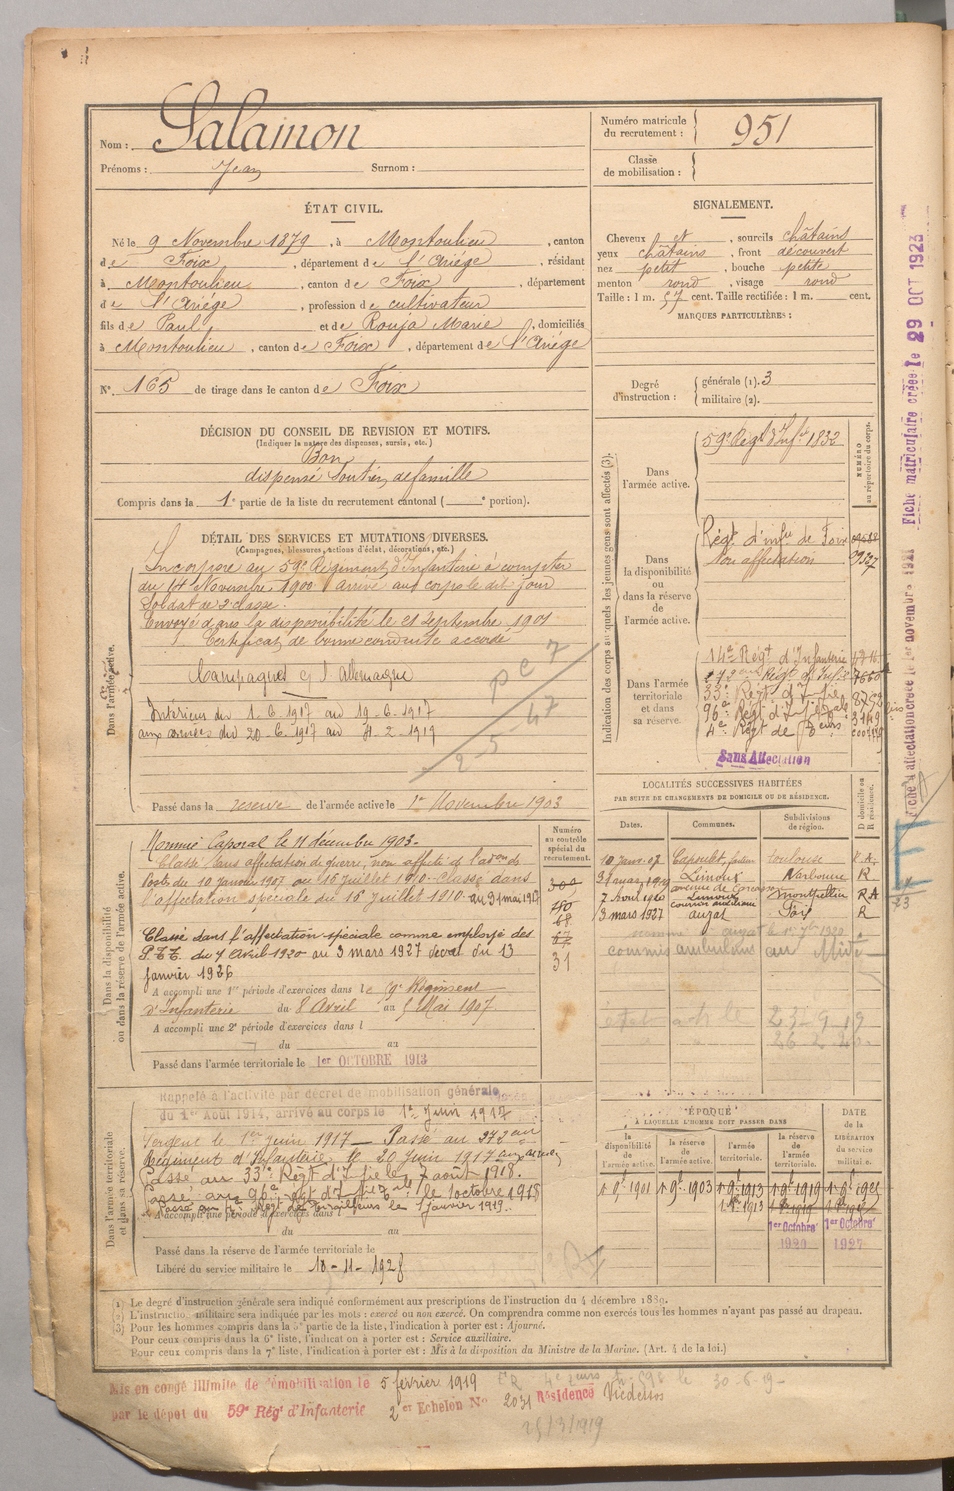 Nom : Salamon
Prénoms : Jean Surnom :
Numéro matricule
du recrutement : 951
Classe
de mobilisation :
ÉTAT CIVIL.
Né le 9 Novembre 1879, à Montoulieu, canton
de Foix, département de l'Ariège, résidant
à Montoulieu, canton de Foix, département
de l'Ariège, profession de cultivateur
fils de Paul et de Rouja Marie, domiciliés
à Montoulieu, canton de Foix, département de l'Ariége
N° 165 de tirage dans le canton de Foix
SIGNALEMENT.
Cheveux et, sourcils châtains
yeux châtains, front découvert
nez petit, bouche petite
menton rond, visage rond
Taille : 1 m. 57 cent. Taille rectifiée : 1 m. cent.
MARQUES PARTICULIÈRES :
Degré
d'instruction :
générale (1). 3
militaire (2).
DÉCISION DU CONSEIL DE REVISION ET MOTIFS.
(Indiquer la nature des dispenses, sursis, etc.)
Bon
dispensé Soutien de famille
Compris dans la 1e partie de la liste du recrutement cantonal ( e portion).
DÉTAIL DES SERVICES ET MUTATIONS DIVERSES.
(Campagnes, blessures, actions d'éclat, décorations, etc.)
Dans l'armée active.
Incorporé au 59e Régiment d'Infanterie à compter
du 14 Novembre 1900 arrivé au corps le dit jour
Soldat de 2e classe.
Envoyé dans la disponibilité le 21 Septembre 1901
Certificat de bonne conduite accordé
Campagnes c/ l'Allemagne
Intérieur du 1-6-1917 au 19-6-1917
aux armées du 20-6-1917 au 4-2-1919
Passé dans la reserve de l'armée active le 1er Novembre 1903
Indication des corps auxquels les jeunes gens sont affectés (3).
NUMÉRO
au répertoire du corps.
Dans
l'armée active.
59e Régt d'Infie 1832
Dans
la disponibilité
ou
dans la réserve
de
l'armée active.
Régt d'infie de Foix
Non affectation
Dans l'armée
territoriale
et dans
sa réserve.
14e Régt d'Infanterie
272eme Régt d'Infie
33e Régt d'Infie
96e Régt d'Infie
4e Régt de
Sans Affectation
LOCALITÉS SUCCESSIVES HABITÉES
PAR SUITE DE CHANGEMENTS DE DOMICILE OU DE RÉSIDENCE.
Dates. Communes. Subdivisions
de région. D domicile ou
R résidence.
10 Janv. 07 toulouse
Limoux Narbonne R
7 Avril 1920 Limoux Montpellier RA
3 mars 1927 auzat Foix R
Dans la disponibilité
ou dans la réserve de l'armée active.
Numéro
au contrôle
spécial du
recrutement.
Nommé Caporal le 11 décembre 1903.
Classé sans affectation de guerre, non affecté de l'adon des
Postes du 10 Janvier 1907 au 15 juillet 1910. Classé dans
l'affectation spéciale du 15 juillet 1910 au 31 mai 1917
Classé dans l'affectation spéciale comme employé des
P.T.T. du 7 Avril 1920 au 3 mars 1927 decret du 13
janvier 1926
31
A accompli une 1re période d'exercices dans le 59e Régiment
d'Infanterie du 8 Avril au 5 Mai 1907.
A accompli une 2e période d'exercices dans l
du au
Passé dans l'armée territoriale le 1er OCTOBRE 1913
Dans l'armée territoriale
et dans sa réserve.
Rappelé à l'activité par décret de mobilisation générale
du 1er Août 1914, arrivé au corps le 1er Juin 1917
Sergent le 1er juin 1917 — Passé au 272eme
Régiment d'Infanterie le 20 Juin 1917 aux armées
Passé au 33e Régt d'Infie le 7 août 1918.
Passé au 96e Régt d'Infie le 1 octobre 1918
Passé au 4e Régt de Tirailleurs le 1 janvier 1919.
A accompli une période d'exercices dans l
du au
Passé dans la réserve de l'armée territoriale le
Libéré du service militaire le 10-11-1928
ÉPOQUE
À LAQUELLE L'HOMME DOIT PASSER DANS
DATE
de la
LIBÉRATION
du service
militaire.
la
disponibilité
de
l'armée active.
la réserve
de
l'armée active.
l'armée
territoriale.
la
réserve
de l'armée
territoriale.
1er 9bre 1901 1er 9bre 1903 1er 9bre 1913 1er 9bre 1919 1er 9bre 1925
1er Octobre 1er Octobre
1920 1927
(1) Le degré d'instruction générale sera indiqué conformément aux prescriptions de l'instruction du 4 décembre 1889.
(2) L'instruction militaire sera indiquée par les mots : exercé ou non exercé. On comprendra comme non exercés tous les hommes n'ayant pas passé au drapeau.
(3) Pour les hommes compris dans la 5e partie de la liste, l'indication à porter est : Ajourné.
Pour ceux compris dans la 6e liste, l'indication à porter est : Service auxiliaire.
Pour ceux compris dans la 7e liste, l'indication à porter est : Mis à la disposition du Ministre de la Marine. (Art. 4 de la loi.)
Mis en congé illimité de démobilisation le 5 février 1919
par le dépôt du 59e Régt d'Infanterie 2e Echelon No 2031 Résidence Vicdessos
25/3/1919
Fiche matriculaire créée le 29 OCT 1923